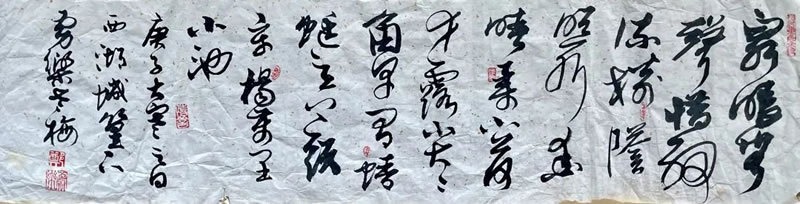 泉眼無
聲惜細
流樹蔭
照水愛
晴柔小荷
才露尖尖
角早有蜻
蜓立上頭
宋楊萬里
小池
庚子大寒日
西湖城
樂老梅